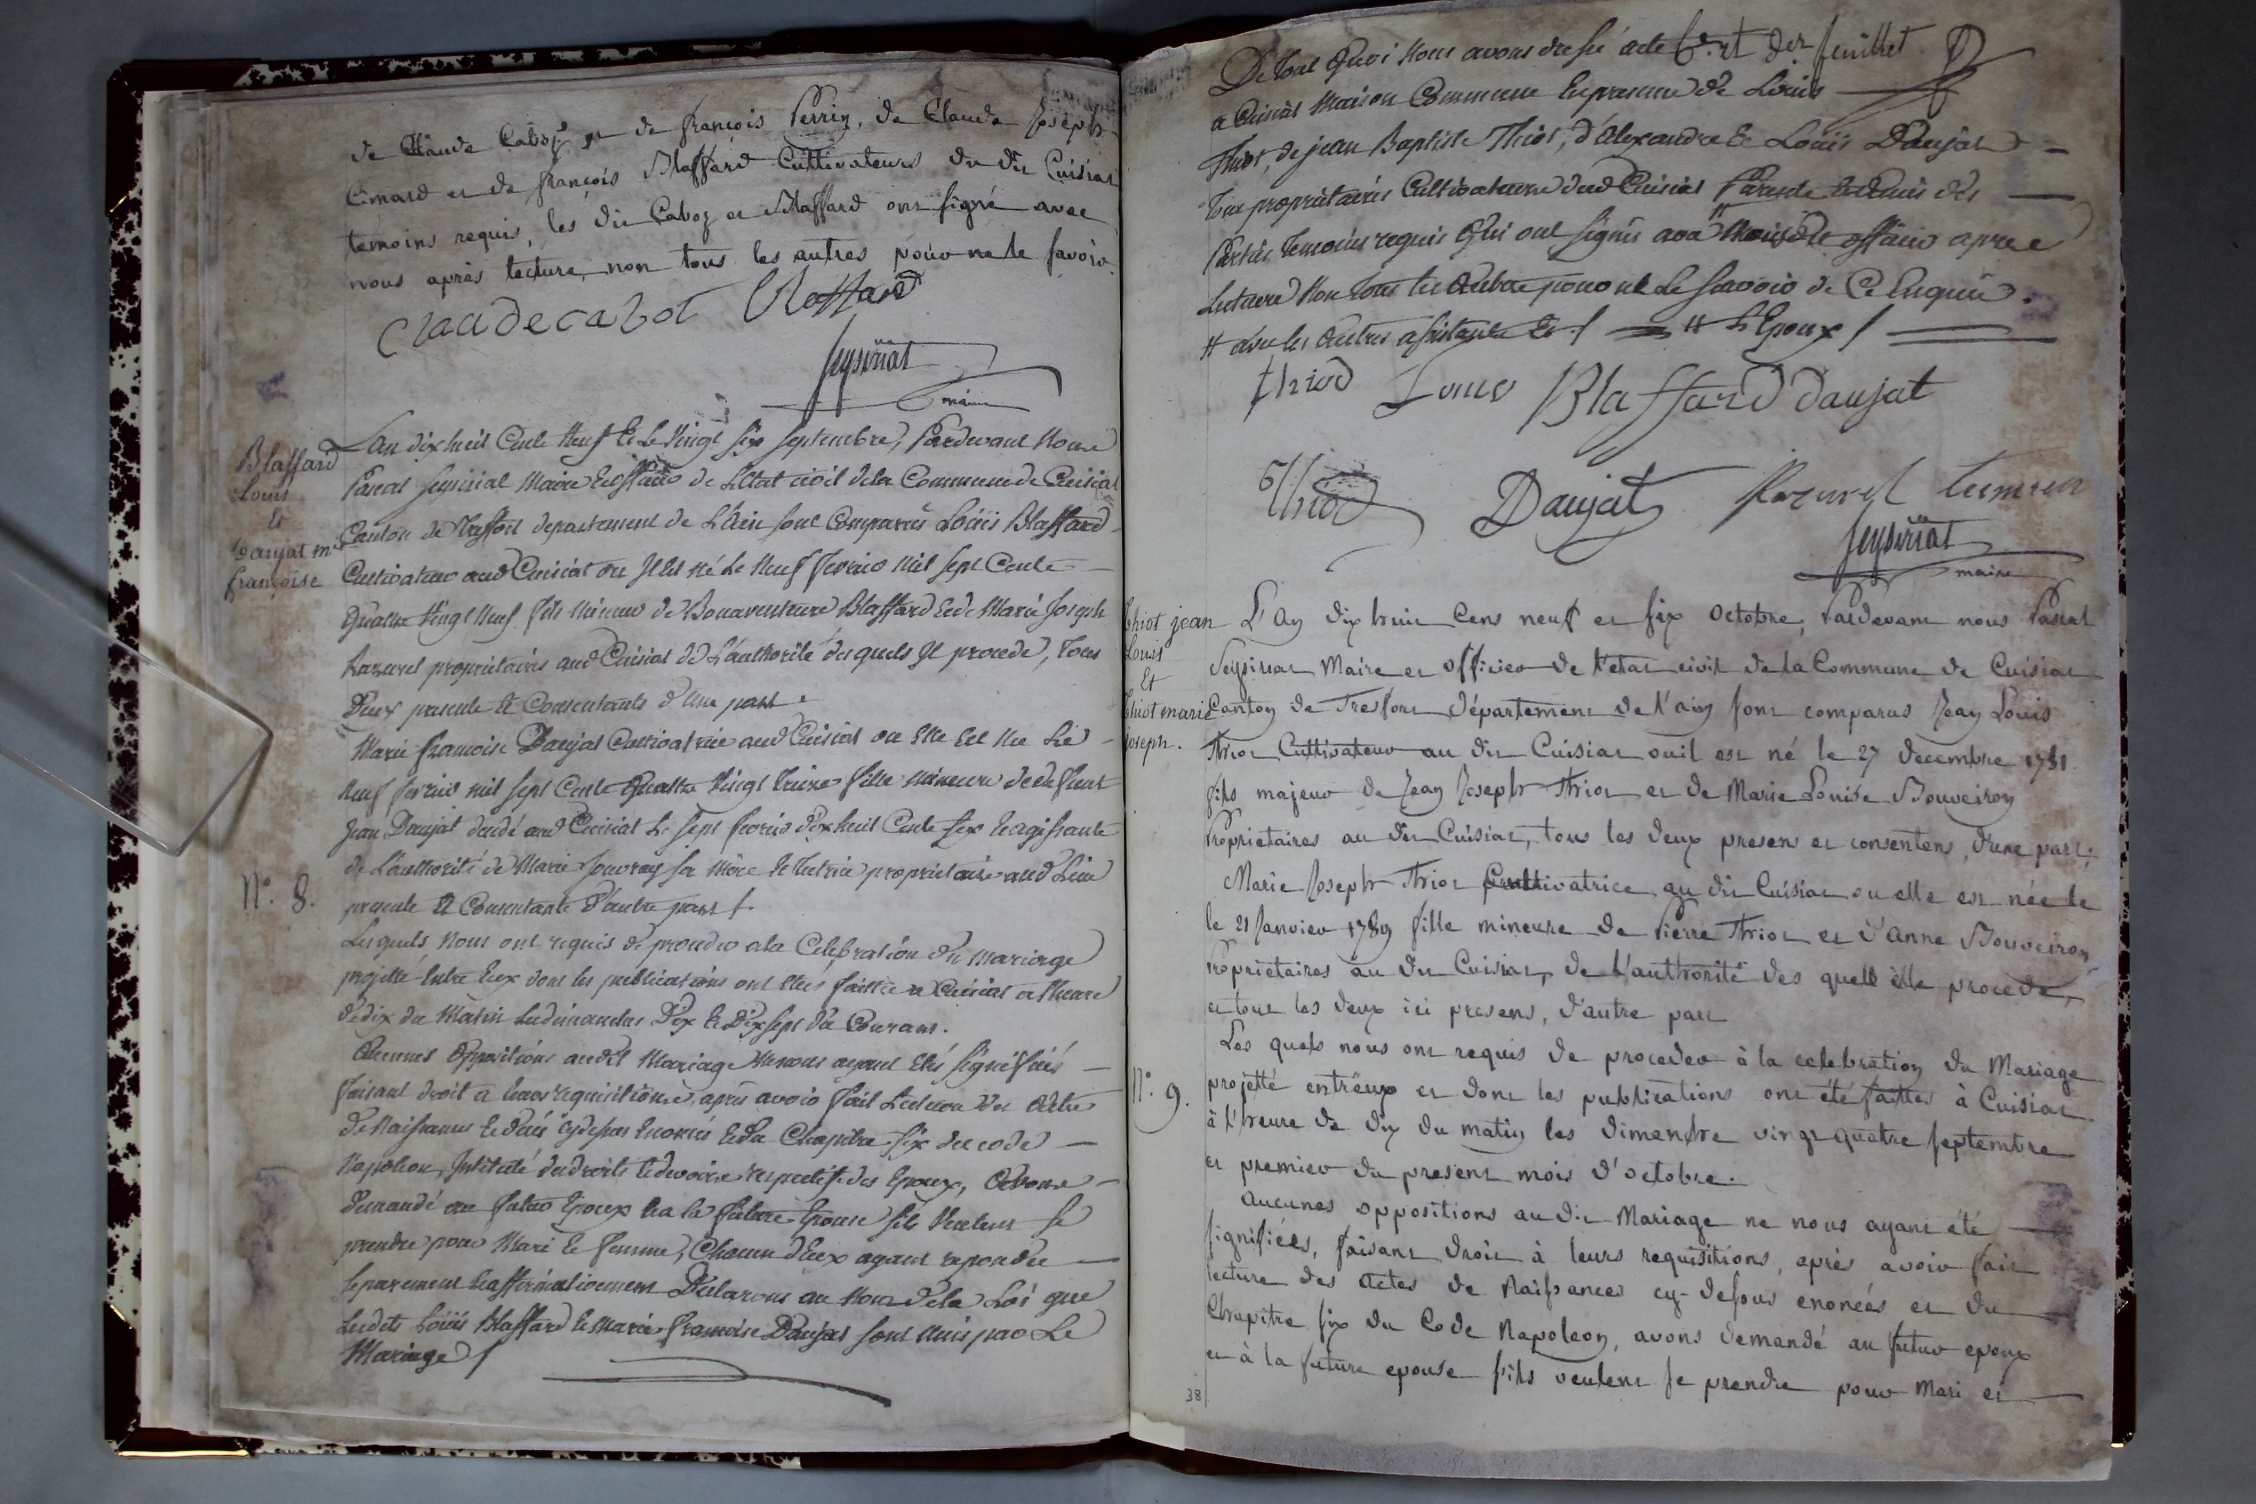 de Claude Caboz et de françois Perrin, de Claude Joseph
Emard et de françois Blaffard Cultivateurs du dit Cuisiat
témoins requis, les dit Caboz et Blaffard ont signé avec
nous après lecture, non tous les autres pour ne le savoir.
Claude cabot Blaffard
Seysiriat
maire
Blaffard
Louis
Et
Daujat m.ie
françoise
N.o 8.
L'an dix huit Cents Neuf Et Le Vingt six septembre, Pardevant Nous
Pascal Seysiriat Maire Et officier de L'Etat civil de la Commune de Cuisiat
Canton de Treffort departement de L'Ain sont Comparus Loüis Blaffard
Cultivateur aud Cuisiat ou Il Est né Le Neuf fevrier Mil Sept Cents
Quatre Vingt Neuf fils Mineur de Bonaventure Blaffard Et de Marie Joseph
Razurel proprietaires aud Cuisiat de L'authorité desquels Il procede, Tous
Deux presents Et Consentants d'Une part.
Marie françoise Daujat Cultivatrice aud Cuisiat ou Elle Est Née Le
Neuf fevrier mil sept Cents Quatre Vingt Treize fille Mineure de defunt
Jean Daujat décédé aud Cuisiat Le sept fevrier dix huit Cents six Et agissante
de L'authorité de Marie Jouvray sa Mère Et Tutrice proprietaire aud Lieu
presente Et Consentante d'autre part.
Lesquels Nous ont requis de proceder a la Celebration du Mariage
projetté Entre Eux dont les publications ont Etés faittes a Cuisiat a l'heure
de dix du Matin Les dimanches Dix Et Dix sept du Courant.
Aucunes Oppositions audit Mariage Ne nous ayant Etés signiffiés
faisant droit a Leurs requisitions, apres avoir fait Lecture des Actes
de Naissances Et décés cydessus Enoncés Et du Chapitre six du code
Napoleon, Intitulé des droits Et devoirs respectifs des Epoux, Avons
demandé au futur Epoux Et a la future Epouse s'ils Veulent se
prendre pour Mari Et femme, Chacun d'Eux ayant repondu
separement Et affirmativement Declarons au Nom de la Loi que
Lesdits Loüis Blaffard Et Marie françoise Daujat sont Unis par Le
Mariage
De Tout Quoi Nous avons dressé acte 6.e et der feuillet
a Cuisiat Maison Commune En presence de Louis
Thiot, de jean Baptiste Thiot, d'Alexandre Et Loüis Daujat
Tous proprietaires Cultivateurs dud Cuisiat Parents Et Amis des
Parties Temoins requis Qui ont signés avec Nous officier apres
Lecture Non Tous Les Autres pour ne Le Scavoir de Ce Enquis.
# avec les Autres assistants Et / # L'Epoux /
thiod Louis Blaffard daujat
Thiod Daujat Razurel temoin
Seysiriat
maire
Thiot jean
Louis
Et
Thiot marie
Joseph.
N.o 9.
L'An dix huit Cens neuf et six Octobre, Pardevant nous Pascal
Seysiriat Maire et officier de l'etat civil de la Commune de Cuisiat
Canton de Treffort département de l'ain sont comparus Jean Louis
Thiot Cultivateur au dit Cuisiat ou il est né le 27 decembre 1781
fils majeur de Jean Joseph Thiot et de Marie Louise Bouveiron
Proprietaires au dit Cuisiat, tous les deux presens et consentens, d'une part;
Marie Joseph Thiot Cultivatrice au dit Cuisiat ou elle est née le
le 21 Janvier 1789 fille mineure de Pierre Thiot et d'Anne Bouveiron,
Proprietaires au dit Cuisiat, de l'authorité des quels elle procede,
et tous les deux ici presens, d'autre part
Les quels nous ont requis de proceder à la celebration du Mariage
projetté entr'eux et dont les publications ont été faittes à Cuisiat
à l'heure de dix du matin les dimanche vingt quatre septembre
et premier du present mois d'octobre.
Aucunes oppositions au dit Mariage ne nous ayant été
signifiées, faisant droit à leurs requisitions, après avoir fait
lecture des Actes de Naissances cy-dessus enoncés et du
Chapitre six du Code Napoleon, avons demandé au futur epoux
et à la future epouse s'ils veulent se prendre pour Mari et
38